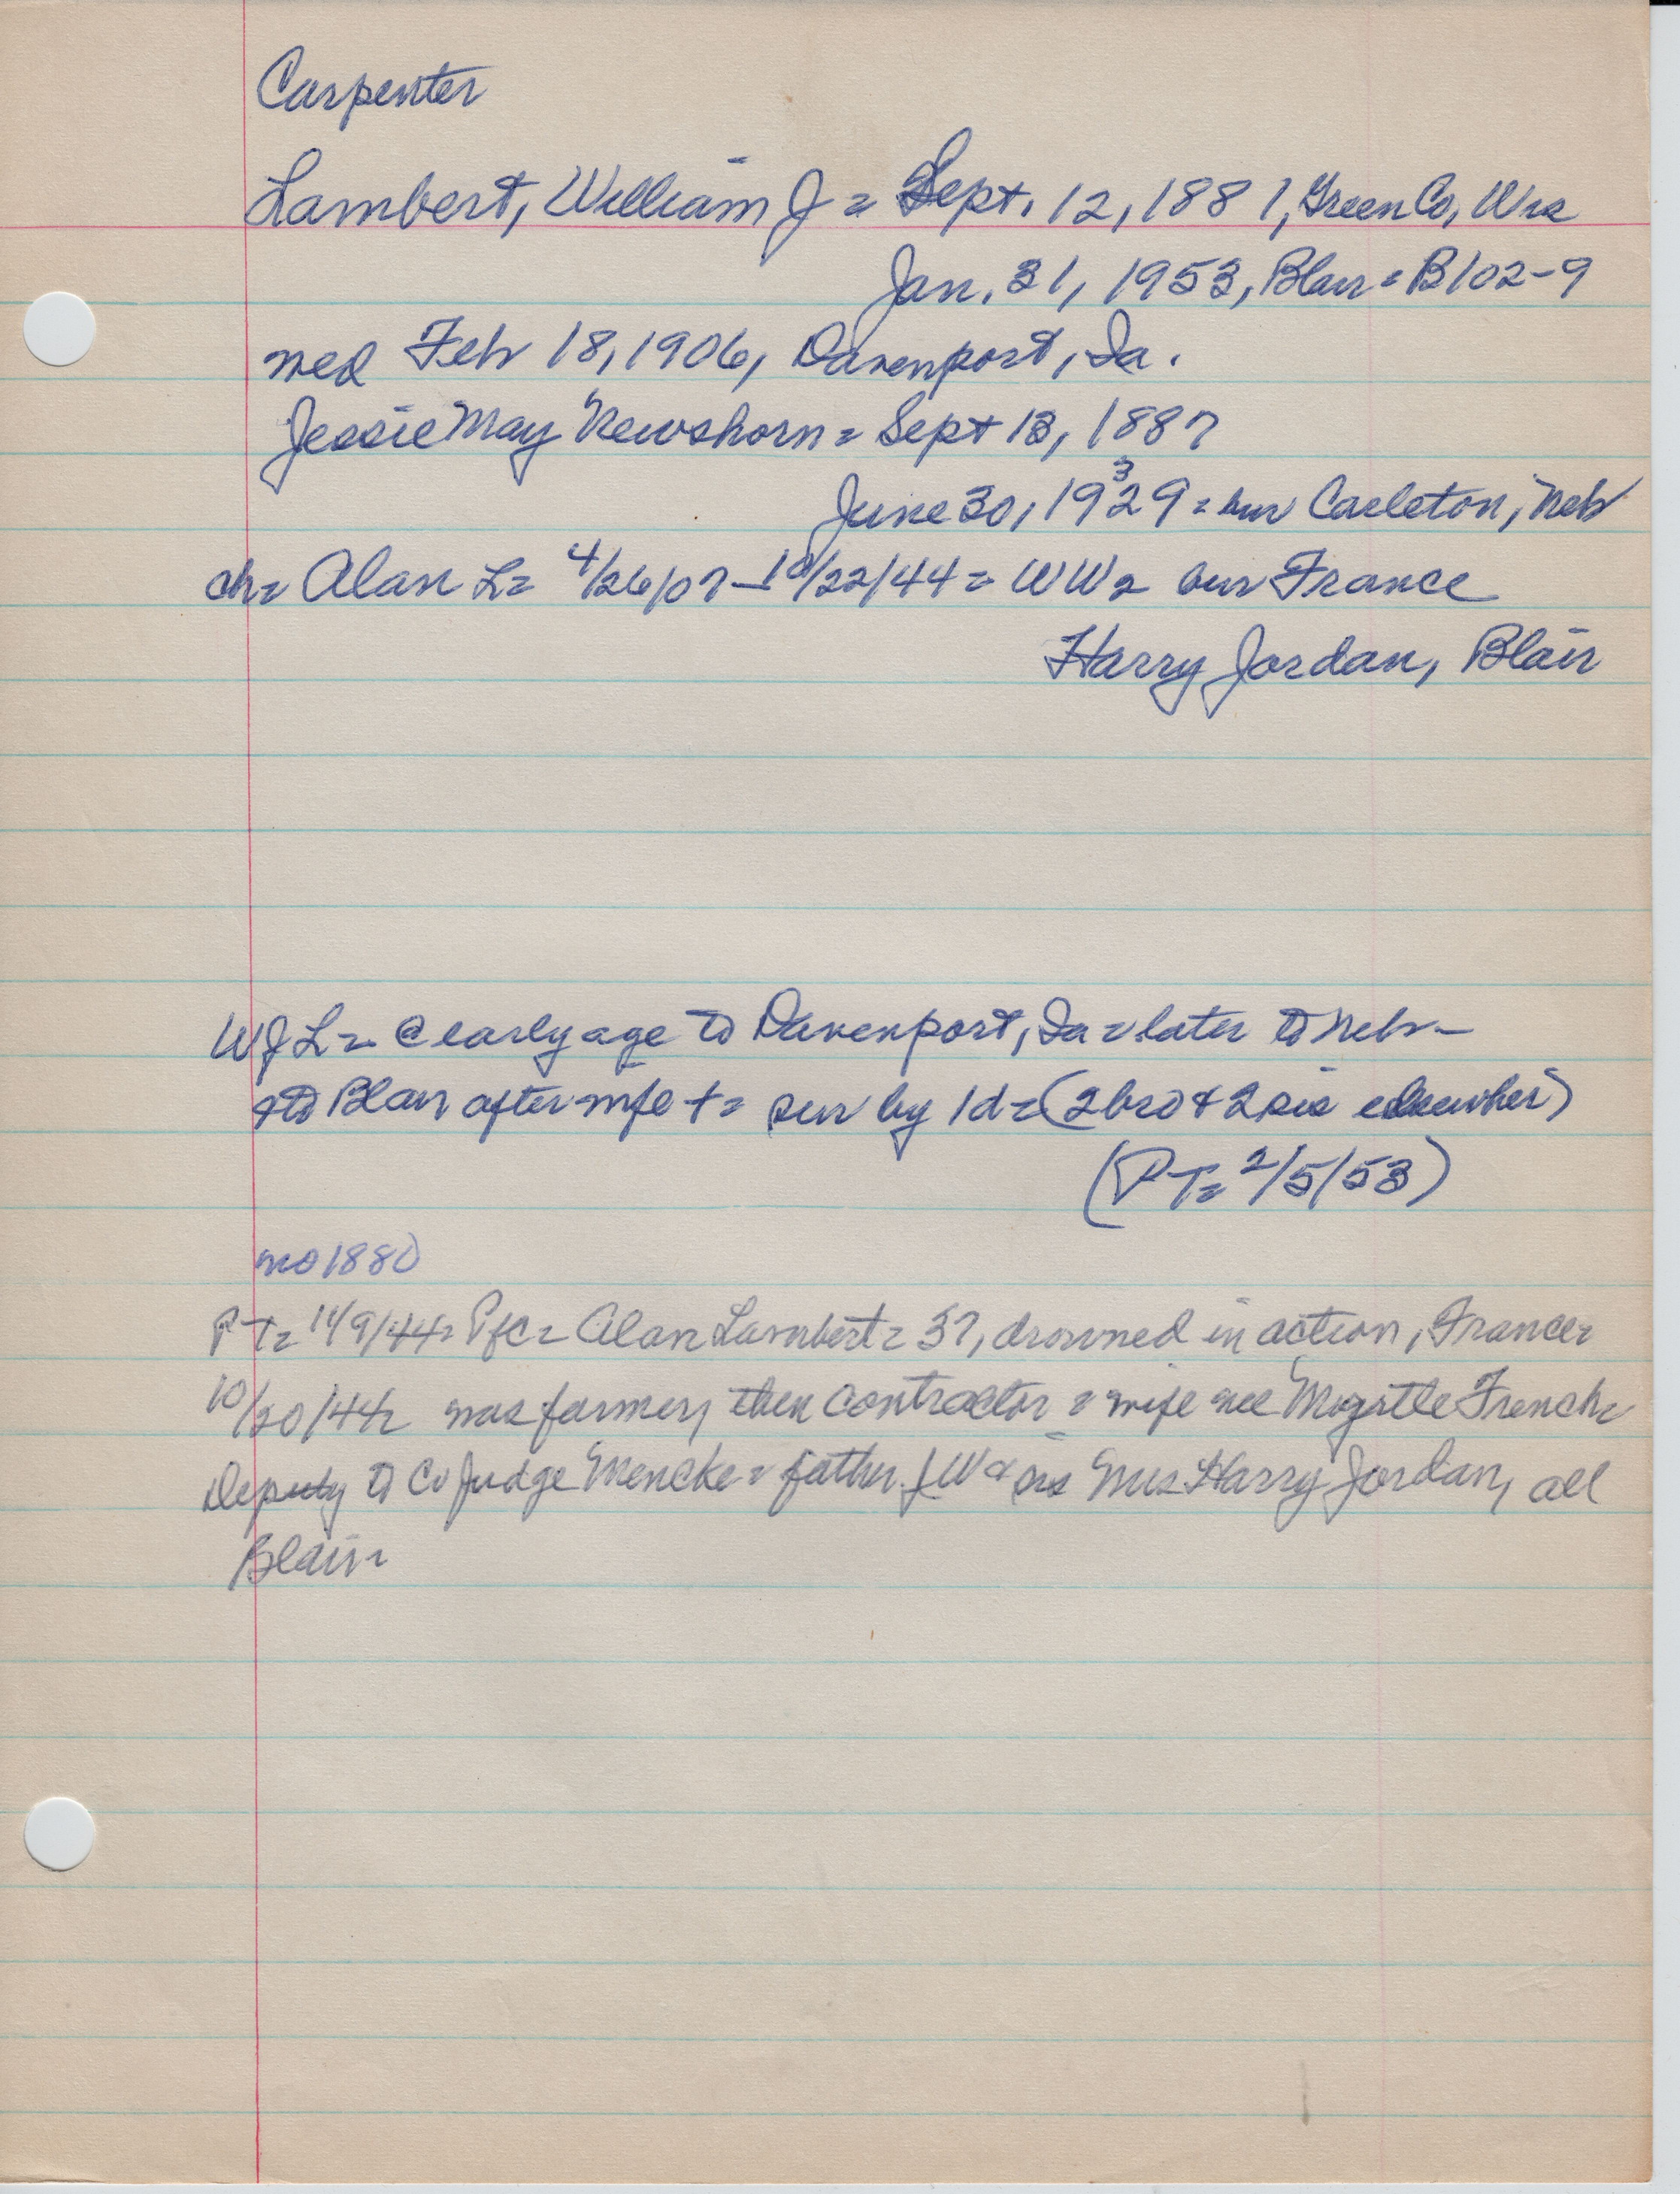 Carpenter
Lambert, William J = Sept. 12, 1881, Green Co, Wis
Jan. 31, 1953, Blair = B102-9
med Feb 18, 1906, Davenport, Ia.
Jessie May Newshorn = Sept 13, 1887
3
June 30, 1929 = bur Carleton, Neb
ch = Alan L = 4/26/07 - 10/22/44 = WW2 bur France
Harry Jordan, Blair
WJL = @ early age to Davenport, Ia = later to Neb -
to Blair after wife + = sur by 1d = (2 bro & 2 sis elsewher)
(PT = 2/5/53)
no 1880
PT = 11/9/44 = Pfc = Alan Lambert = 37, drowned in action, France =
10/20/44 = was farmer, then contractor = wife nee Myrtle French =
Deputy to Co Judge Mencke = father JW & sis Mrs Harry Jordan, all
Blair =